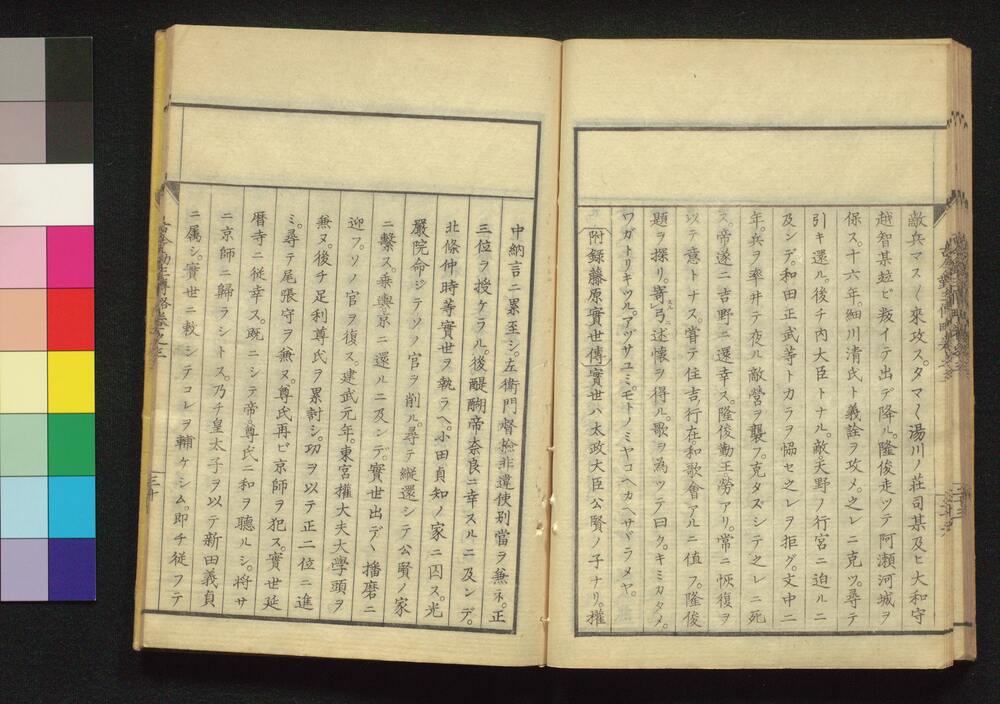 敵兵マス〱來攻ス。タマ〱湯川ノ荘司某及ヒ大和守
越智某並ビ叛イテ出デ降ル。隆俊走ツテ阿瀬河城ヲ
保ス。十六年。細川清氏ト義詮ヲ攻メ。之レニ克ツ。尋テ
引キ還ル。後チ内大臣トナル。敵。天野ノ行宮ニ迫ルニ
及ンデ。和田正武等トカラヲ恊セ之レヲ拒グ。文中二
年。兵ヲ率井テ夜ル敵營ヲ襲フ。克タズシテ之レニ死
ス。帝遂ニ吉野ニ還幸ス。隆俊勤王。勞アリ。常ニ恢復ヲ
以テ意トナス。嘗テ住吉ノ行在。和歌會アルニ値フ。隆俊
題ヲ探リ。寄弓述懷ヲ得ル。歌ヲ為ツテ曰ク。キミカタメ。
ワガトリキツル。アヅサユミ。モトノミヤコヘカヘサヾラメヤ。
附録藤原實世傳 實世ハ太政大臣公賢ノ子ナリ。權
中納言ニ累至シ。左衛門督撿非違使別當ヲ兼ネ。正
三位ヲ授ケラル。後醍醐帝奈良ニ幸スルニ及ンデ。
北條仲時等實世ヲ執ラヘ。小田貞知ノ家ニ囚ス。光
嚴院命ジテソノ官ヲ削ル。尋テ縱還シテ公賢ノ家
ニ繫ス。乗輿京ニ還ルニ及ンデ。實世出デヽ播磨ニ
迎フ。ソノ官ヲ復ス。建武元年。東宮權大夫大學頭ヲ
兼ヌ。後チ足利尊氏ヲ累討シ。功ヲ以テ正二位ニ進
ミ。尋テ尾張守ヲ兼ヌ。尊氏再ビ京師ヲ犯ス。實世延
暦寺ニ従幸ス。既ニシテ帝。尊氏ニ和ヲ聽ルシ。将サ
ニ京師ニ歸ラシトス。乃チ皇太子ヲ以テ新田義貞
ニ属シ。實世ニ敕シテコレヲ輔ケシム。即チ従フテ
三十